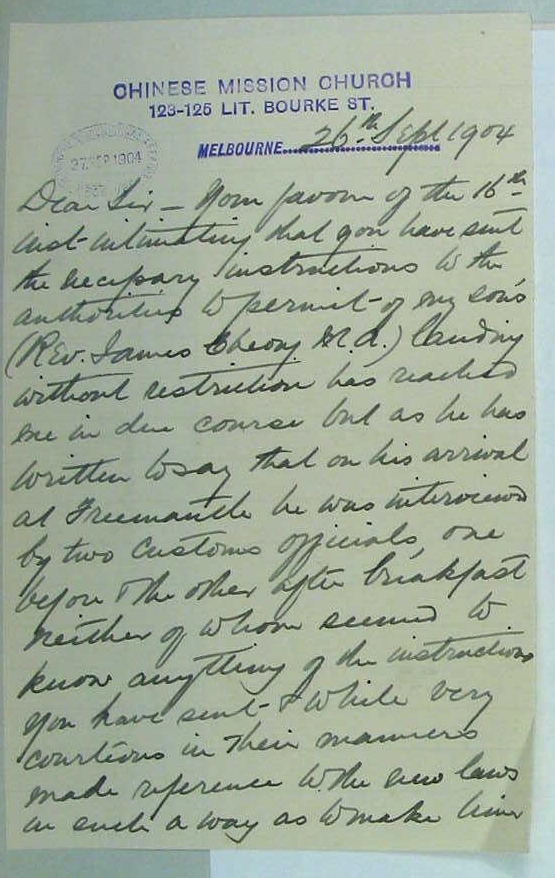 CHINESE MISSION CHURCH
123-125 LIT. BOURKE ST.
MELBOURNE 26th Sept 1904
27 SEP 1904
Dear Sir – Your favour of the 16th
inst- intimating that you have sent
the necessary instructions to the
authorities to permit- of my son's
(Rev. James Cheong M.A.) landing
without restriction has reached
me in due course but as he has
written to say that on his arrival
at Freemantle he was interviewed
by two Customs officials, one
before & the other after breakfast
neither of whom seemed to
know anything of the instructions
you have sent- & while very
courtious in their manners
made reference to the new laws
in such a way as to make him